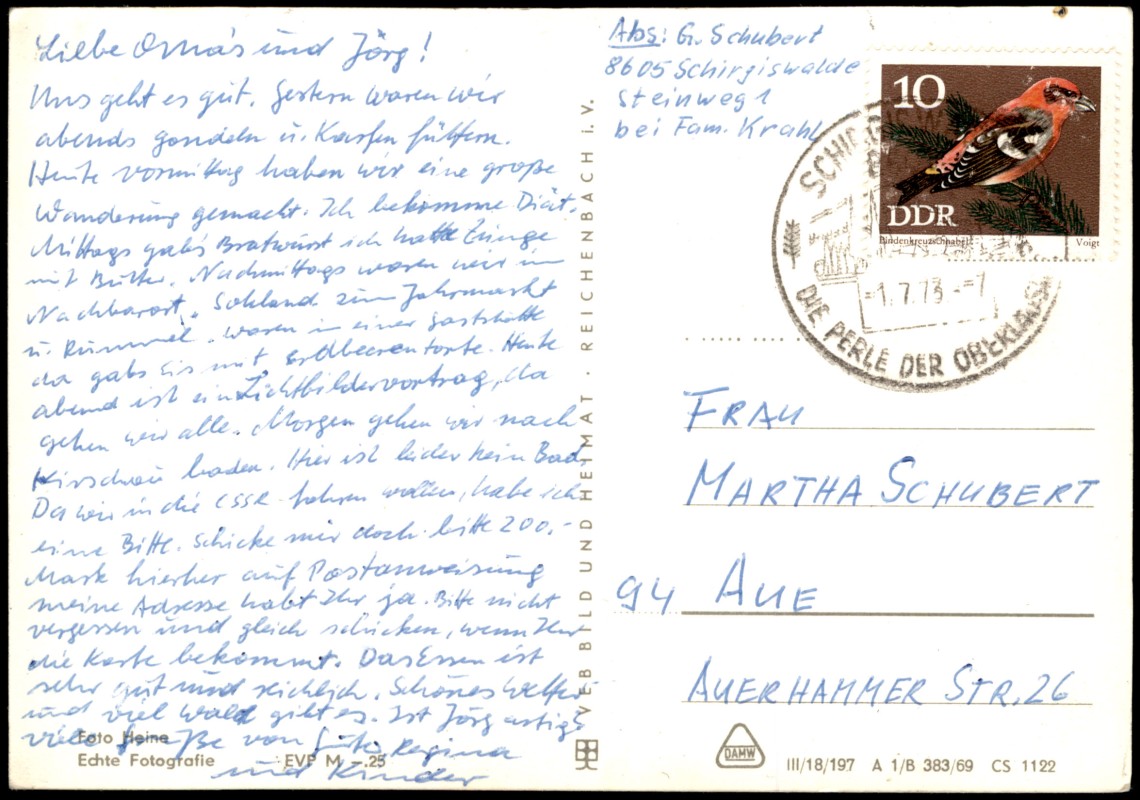 Liebe Oma's und Jörg!
Uns geht es gut. Gestern waren wir
abends gondeln u. Karpfen füttern.
Heute vormittag haben wir eine große
Wanderung gemacht. Ich bekomme Diät.
Mittags gabs Bratwurst ich hatte Zunge
mit Butter. Nachmittags waren wir im
Nachbarort, Sohland zum Jahrmarkt
u. Rummel, waren in einer Gaststätte
da gabs Eis mit Erdbeerentorte. Heute
abend ist ein Lichtbildervortrag, da
gehen wir alle. Morgen gehen wir nach
Kirschau baden. Hier ist leider kein Bad.
Da wir in die CSSR fahren wollen, habe ich
eine Bitte. Schicke mir doch bitte 200,-
Mark hierher auf Postanweisung
meine Adresse habt Ihr ja. Bitte nicht
vergessen und gleich schicken, wenn Ihr
die Karte bekommt. Das Essen ist
sehr gut und reichlich. Schönes Wetter
und viel Wald gibt es. Ist Jörg artig?
viele Grüße von Regina
und Kinder
Foto Heine
Echte Fotografie EVP M -.25
VEB BILD UND HEIMAT · REICHENBACH i. V.
Abs: G. Schubert
8605 Schirgiswalde
Steinweg 1
bei Fam. Krahl
10
DDR
Bindenkreuzschnabel Voigt
SCHIRGISW
-1.7.73--7
DIE PERLE DER OBERLAUSI
FRAU
MARTHA SCHUBERT
94 AUE
AUERHAMMER STR. 26
DAMW
III/18/197 A 1/B 383/69 CS 1122